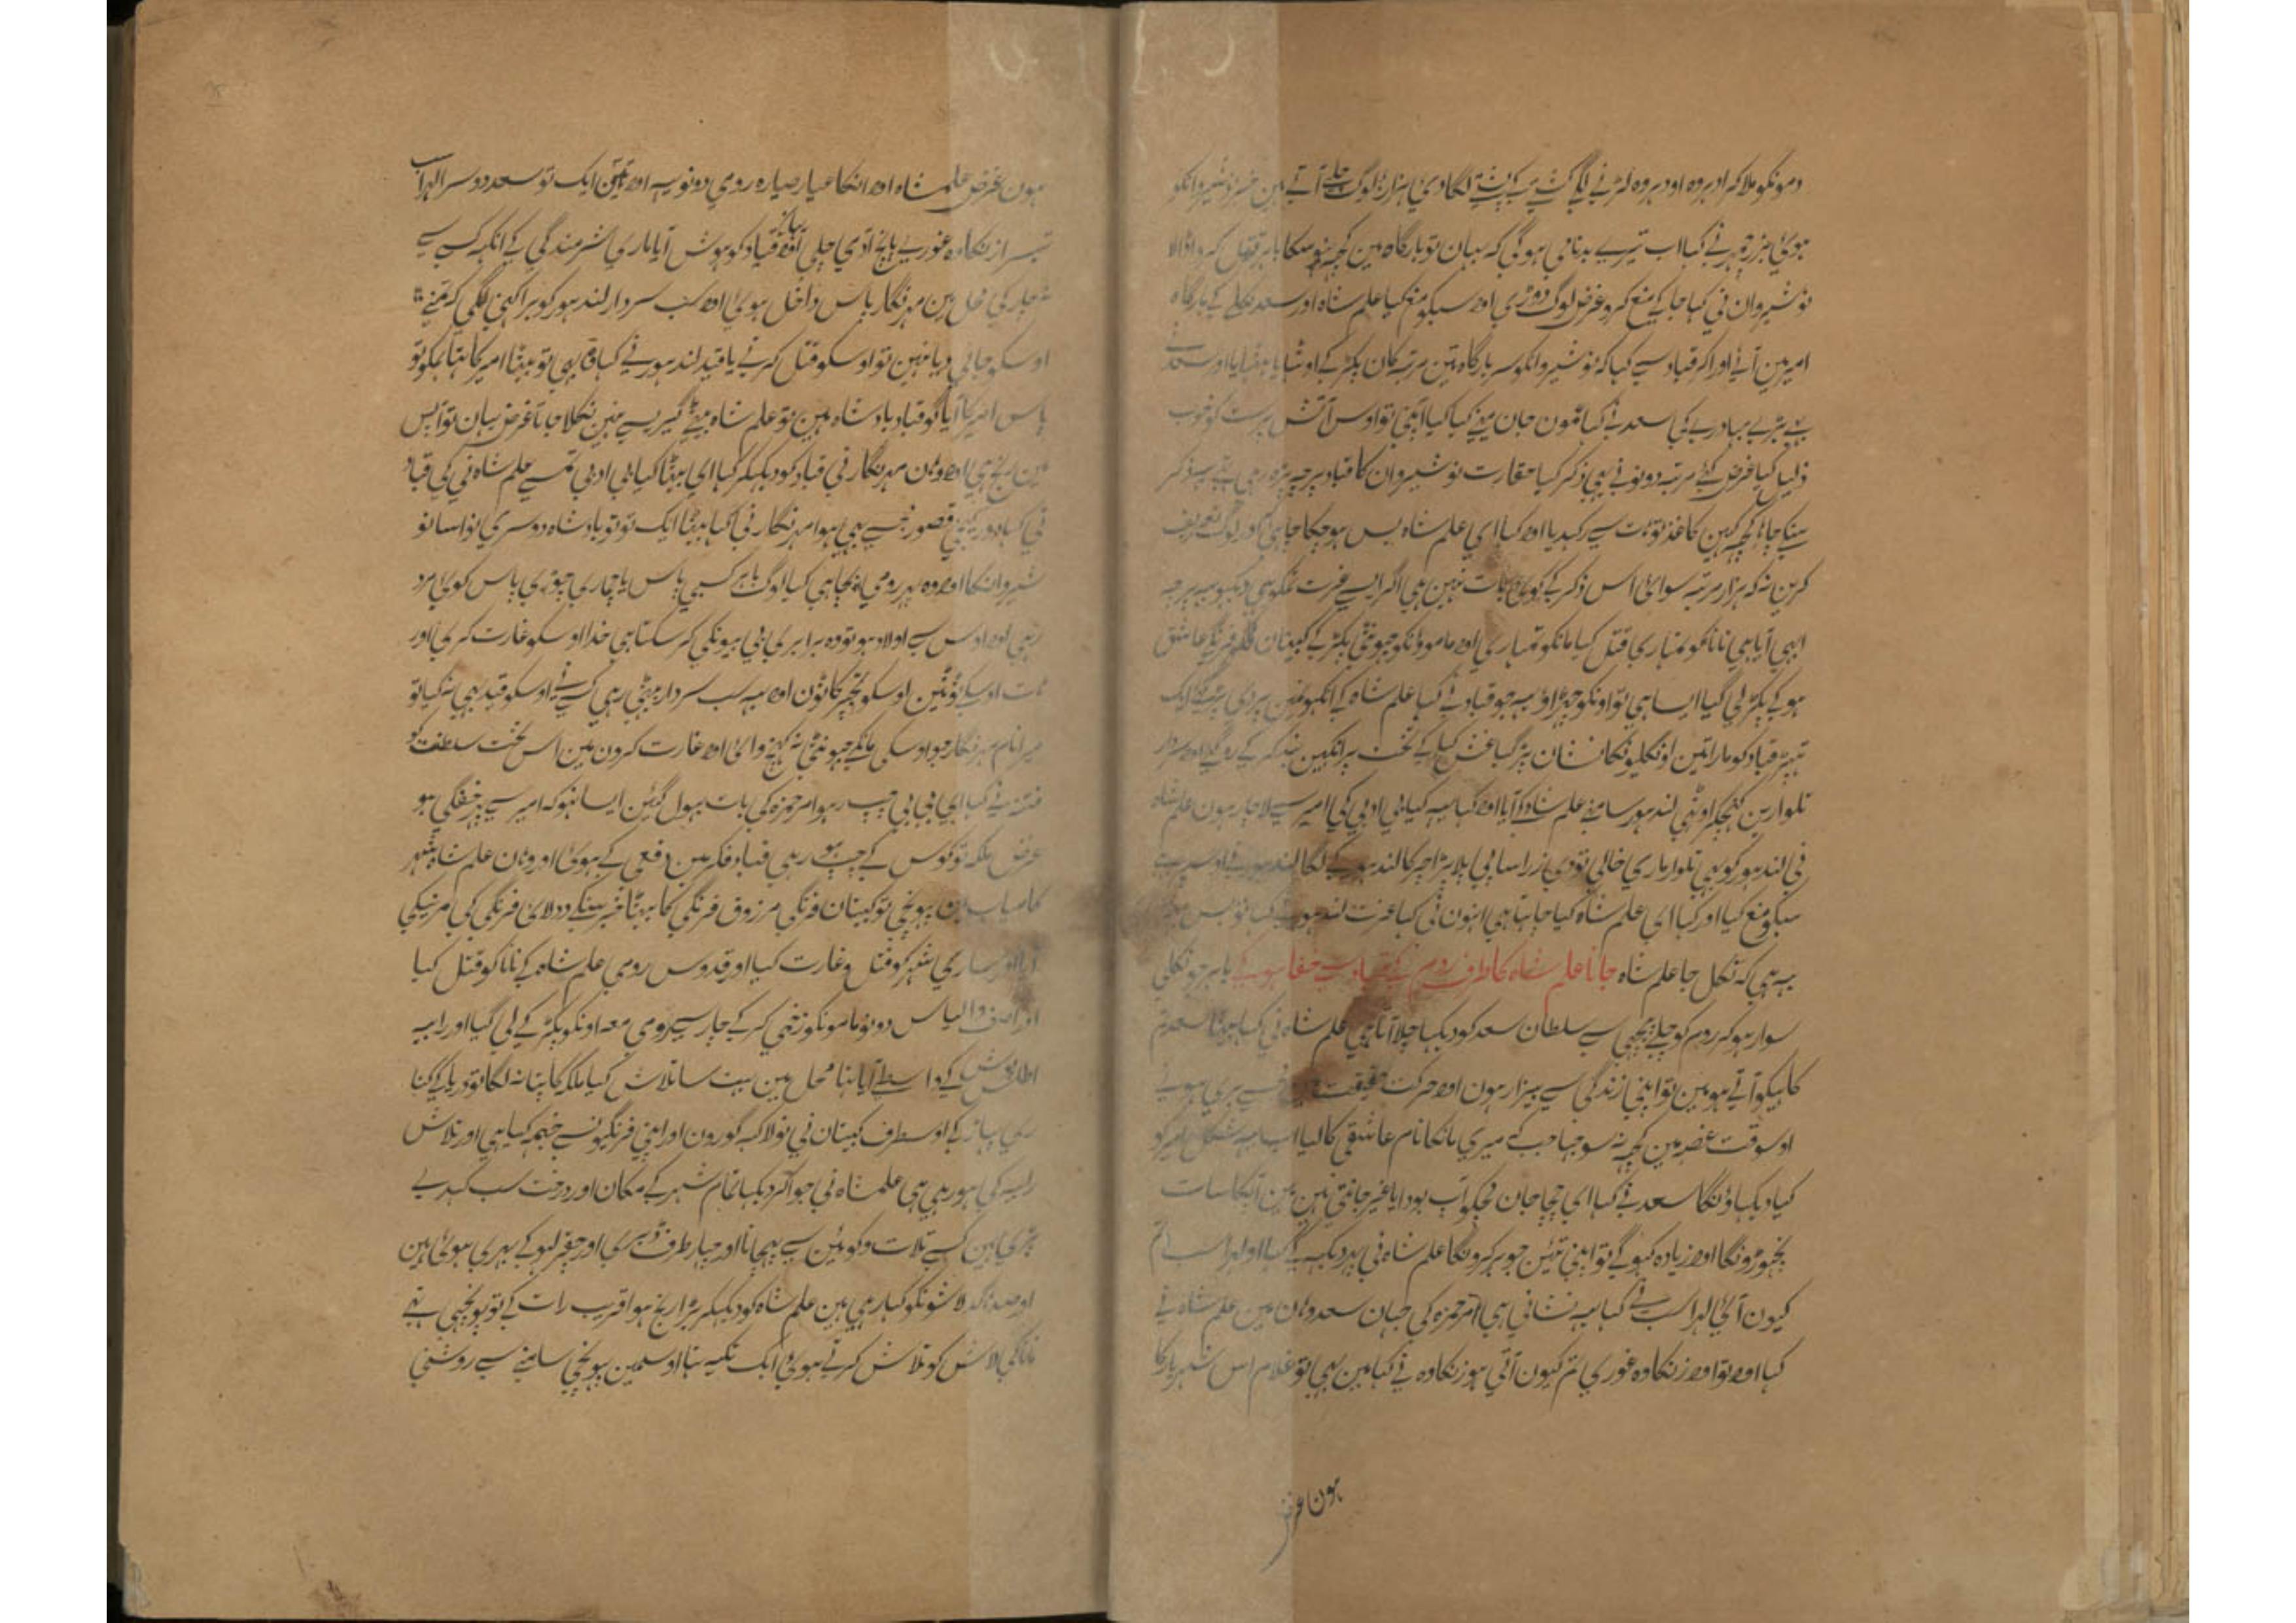 دمونکو ملا کر ادہر وہ اودہر وہ لڑنے لگے کشتی پر کشتے لگادی ہزارہا لوگ چلے آتے ہین خبر نوشیروانکو
ہوئی بزرجمہر نے کہا اب تیرے بدنامی ہوگی کہ بہان تو بارگاہ مین کچہہ نہو سکا باہر قتل کروا ڈالا
نوشیروان نی کہا جا کے منع کرو غرض لوگ دوڑی اور سبکو منع کیا علم شاہ اور سعد نکلے کے بارگاہ
امیر مین آئے اور اکر قباد سے کہا کہ نوشیروانکو سر بارگاہ تین مرتبہ کان پکڑ کے اوٹہایا بٹہایا اور سعد نے
بے بڑے بہادرے کی سعد نے کہا عمون جان مینے کیا کیا اپنی تو اوس آتش پرست کو خوب
ذلیل کیا غرض کئے مرتبہ دونو نے یہی ذکر کیا حقارت نوشیروان کا قباد پرچہ پڑہ رہی تہے یہہ ذکر
سنکے کاغذ سے رکہدیا اور کہا اے علم شاہ بس ہوچکا چاہی اور لوگ تعریف
کرین نہ کہ ہزار مرتبہ سوائے اس ذکر کے کوئی بات نہین ہی اگر ایسے غیرت تمکو ہی دیکہو یہہ پرچہ
ابہی آیا ہی نانا کو تمہاری قتل کیا مانکو تمہاری اور مامووانکو پکڑ کے کپیتان فرنگی عاشق
ہو کے پکڑ لی گیا ایسا ہی تو اونکو چہڑاو یہہ جو قباد نے کہا علم شاہ کے انکہو مین پر ایک
تہپڑ قباد کو مارا تین اونگلیونکا نشان پڑ گیا غش کہا کے تخت پر انکہین بند کر کے رہ گیا اور سردار
تلوارین کہنچکر اوٹہی لندہور سامنے علم شاہ کے آیا اور کہا یہہ کیا بی ادبی کی امیر سے لاچار ہون علم شاہ
نی لندہور کو بہی تلوار ماری خالی تو دی زرا سا پی پلا پڑا چرکا لندہور کے لگا لندہور نے اور سب نے
سبکو منع کیا اور کہا اے علم شاہ کیا چاہتا ہی انہون نی کہا عزت لندہور نے کہا تو بس
یہہ ہی کہ نکل جا علم شاہ جانا علم شاہ کا طرف روم کے قباد سے خفا ہو کے باہر جو نکلی
سوار ہو کر روم کو چلے پیچہی سے سلطان سعد کو دیکہا چلا آتا ہی علم شاہ نی کہا بیٹا سعد تم
کاہیکو آتے ہو مین تو اپنی زندگی سے بیزار ہون اور حرکت حقیقت مین مجہسے بری ہوئے
اوسوقت غصہ مین کچہہ نہ سوجہا جب کے میری مانکا نام عاشقی کا لیا اب یہہ شکل امیر کو
کیا دیکہاونگا سعد نے کہا اے چچا جان مجکو آپ بودا یا غیر جانتی ہین مین آپکا سات
نچہوڑونگا اور زیادہ کہوگے تو اپنی تئین جوہر کرونگا علم شاہ نی پہر دیکہہ کے کہا اے لہراسب تم
کیون آئے لہراسب نے کہا یہہ نشانی ہی امیر حمزہ کی جہان سعد وہان مین علم شاہ نے
کہا اور تو اور زنکاوہ غوری تم کیون آئی ہو زنکاوہ نے کہا مین بہی تو غلام اس شہریار کا
ہون غرض
ہون غرض علمشاہ اور انکا عیار صیارہ رومی دونو یہہ اور تین ایک تو سعد دوسرا لہراسب
تیسرا زنکاوہ غوریے پانچ ادمی چلی اور قباد کو ہوش آیا ماری شرمندگی کے انکہہ کسے سے
محل مین مہر نگار پاس داخل ہوئی اور سب سردار لندہور کو برا کہنی لگی کہ تمنے
اوسکو جانی دیا نہین تو اوسکو قتل کرنے یا قید لندہور نے کہا وہ بہی تو بیٹا امیر کا تہا مجکو تو
پاس امیر کا آیا گو قباد بادشاہ ہین تو علم شاہ بیٹے کسے سے نہین نکلا جاتا غرض یہان تو آپس
مین رنج ہی اور وہان مہر نگار نی قباد کو دیکہکر کہا اے بیٹا کیا بی ادبی تمسے علم شاہ نی کی قباد
نی کہا قصور مجسے بہی ہوا مہر نگار نی کہا بیٹا ایک تو تو بادشاہ دوسری نواسا نو
شیروانکا اور وہ پہر رومی بچا ہی کیا لوگ باہر کسی پاس یا چماری چوہڑی پاس کوئی مرد
رہی اور اوس سے اولاد ہو تو وہ برابری بی بیونکی کر سکتا ہی خدا اوسکو غارت کری اور
ہات اوسکے ٹوٹین اوسکو نحجر کاٹون اور یہہ سب سردار بیٹہی رہی کسے نے اوسکو قید بہی نہ کیا تو
میرا نام مہر نگار جو اوسکی مانکے چونڈی نہ کہنچوائی اور غارت کرون مین اس تخت سلطنت کو
فتنہ نے کہا اے بی بی چپ رہو امیر حمزہ کی بات بہول گئین ایسا نہو کہ امیر سے پہر خفگی ہو
غرض ملکہ تو کوس کے چپ ہو رہی قباد فکر مین دفعی کے ہوئی اور وہان علم شاہ شہر
کامیاب مین پہونچی تو کپیتان فرنگی مرزوق فرنگی کا بیٹا خبر سنکے دولانی فرنگی کی
آیا اور ساری شہر کو قتل وغارت کیا اور قدوس رومی علم شاہ کے نانا کو قتل کیا
اور آصف والیاس دونو مامونکو زخمی کر کے چار سے رومی معہ اونکو پکڑ کے لی گیا اور رابیہ
اطلس پوش کے واسطے آیا تہا محل مین بہت سا تلاش کیا ملکہ کا پتا نہ لگا تو دریا کے کنا
ری پہاڑ کے اوسطرف کپیتان نی نو لاکہہ گورون اور اپنی فرنگیونسے خیمہ کیا ہی اور تلاش
رابیہ کی ہو رہی ہی علمشاہ نی جو آکر دیکہا تمام شہر کے مکان اور درخت سب کہدے
پڑی ہین کسے تلات و کوئین سے پہچانا اور چہار طرف اور چقر لہو کے بہری ہوئی ہین
اور صدہا گدہ لاشونکو کہا رہی ہین علم شاہ کو دیکہکر بڑا رنج ہوا قریب رات کے تو پہونچی ہی تہے
نانا کی لاش کو تلاش کرتے ہوئے ایک تکیہ تہا اوسمین پہونچی سامنے سے روشنی